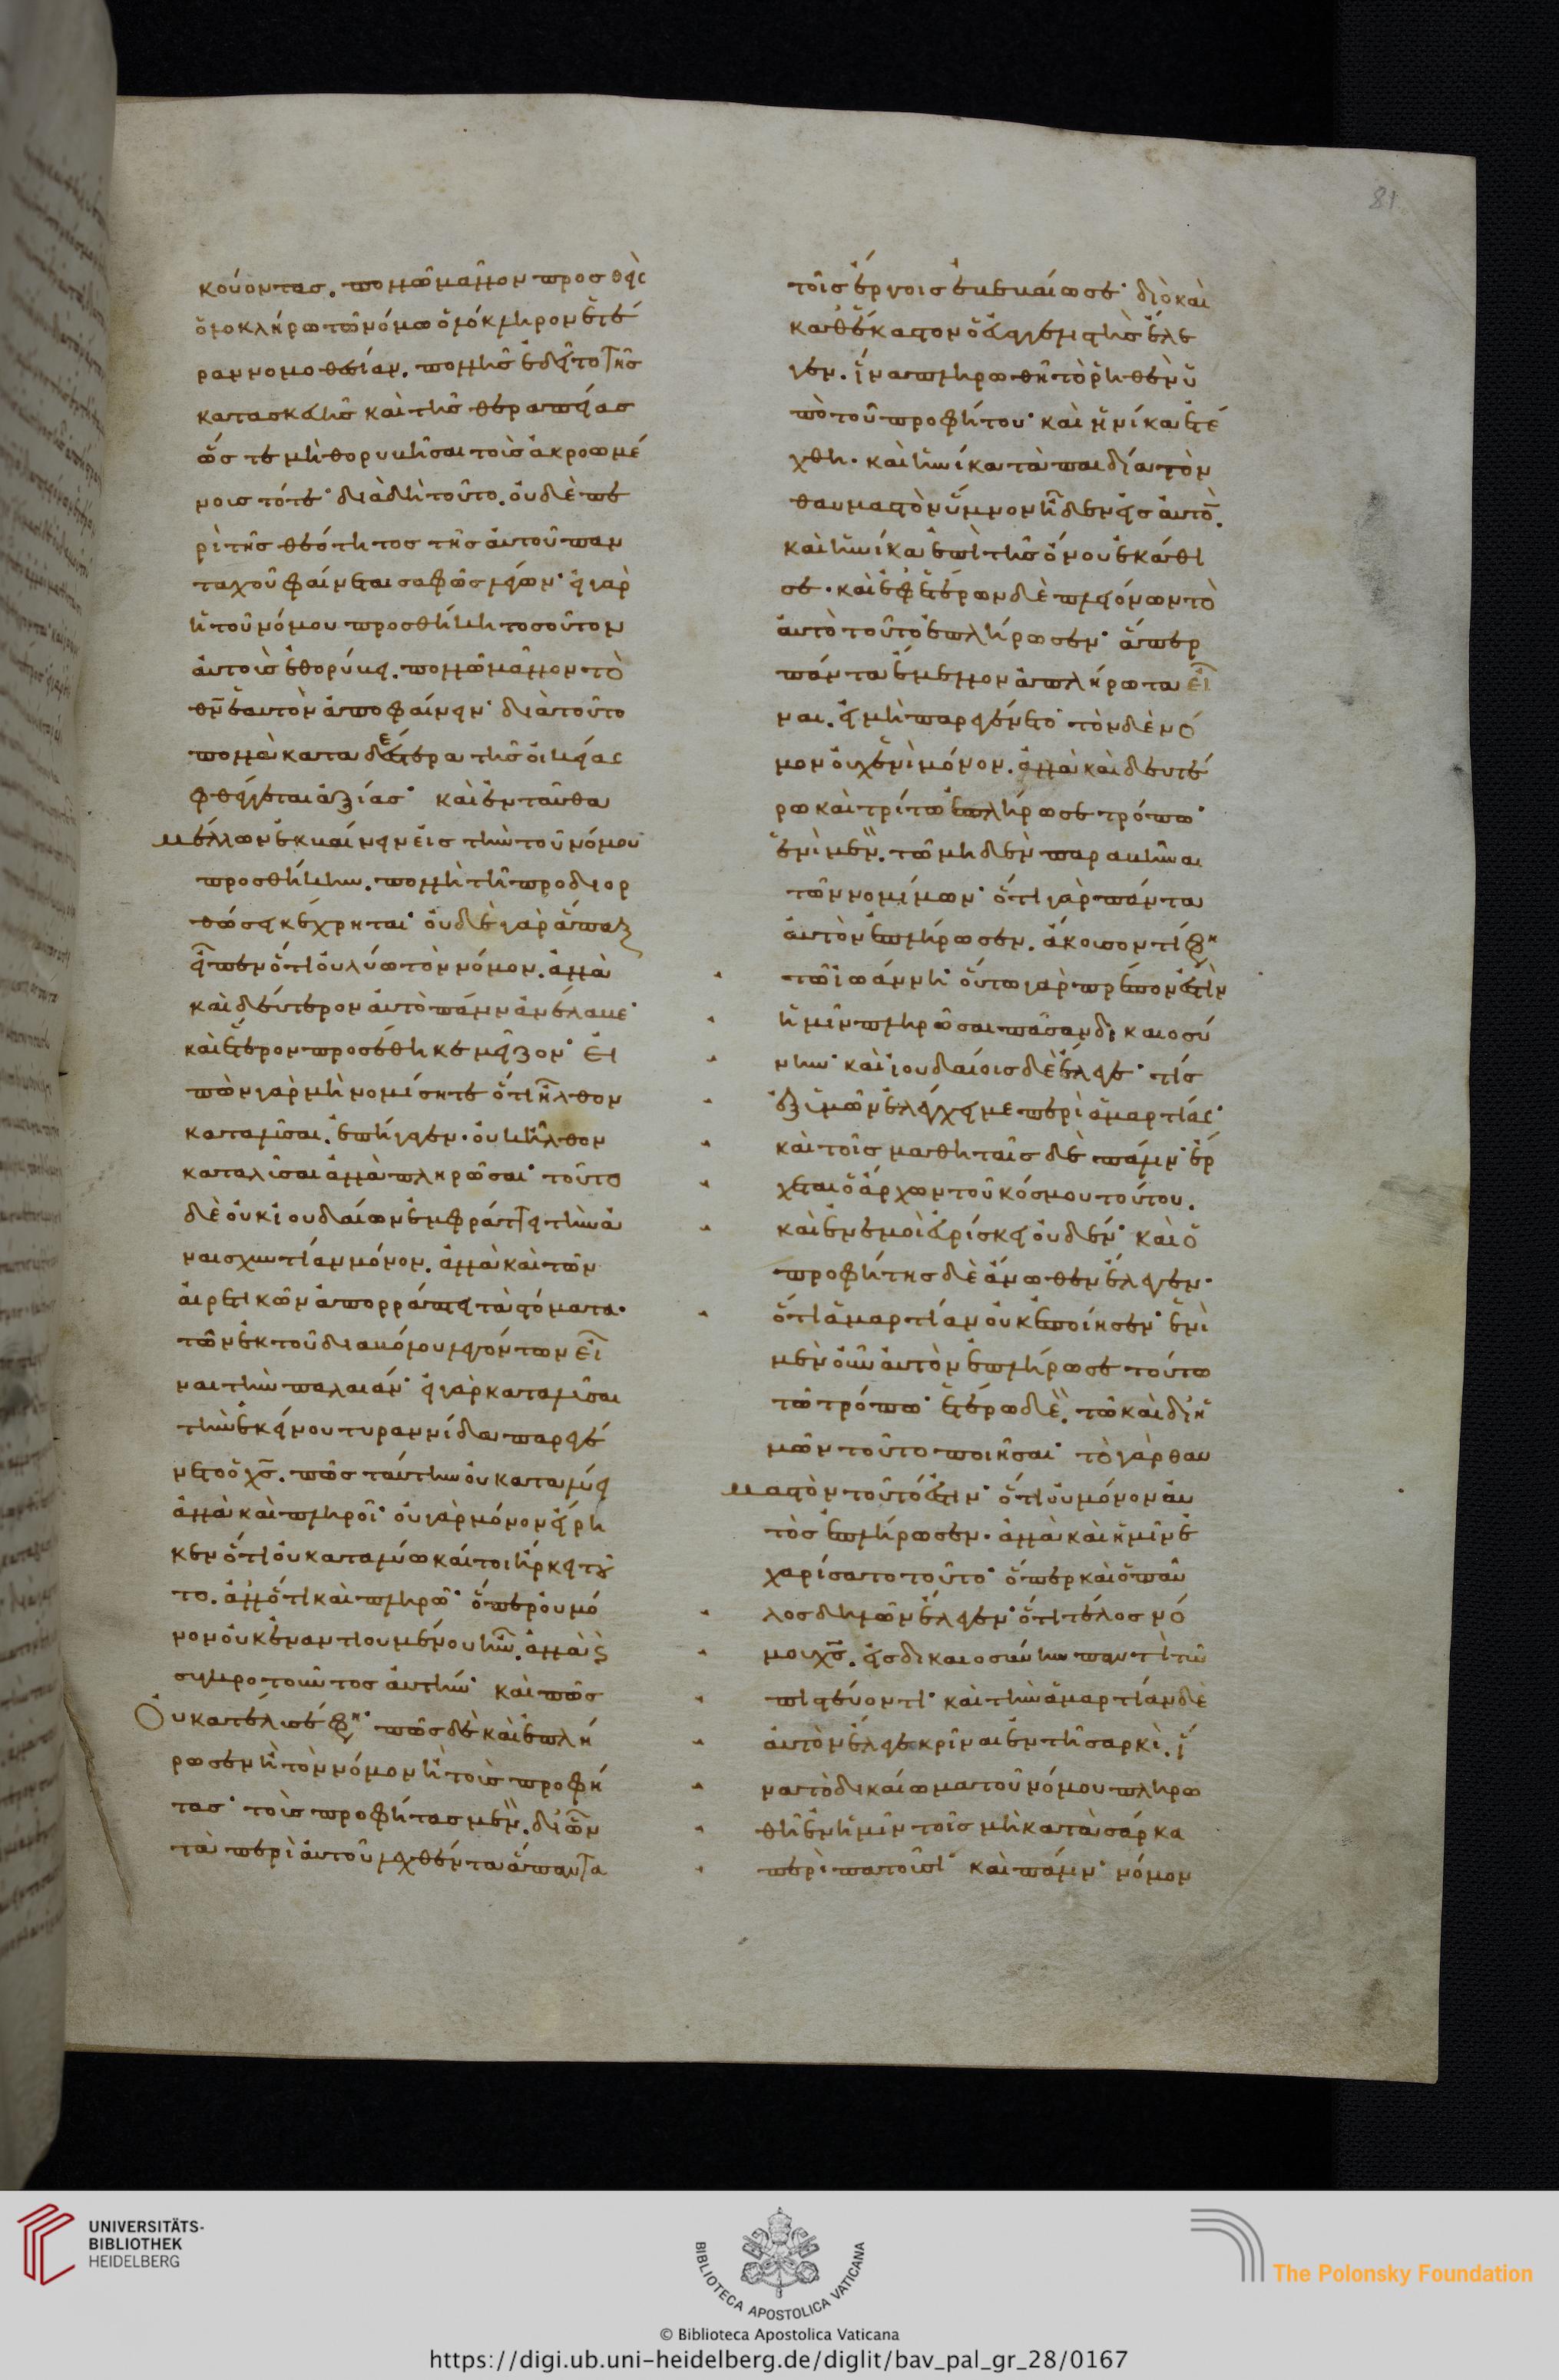 81
κούοντας. πολλῶ μᾶλλον προσθεὶς
ὁλοκλήρω τῶ νόμω ὁλόκληρον ἑτέ
ραν νομοθεσίαν. πολλῆς ἐδεῖτο τῆς
κατασκευῆς καὶ τῆς θεραπείας
ὥστε μὴ θορυβῆσαι τοὺς ἀκροωμέ
νους τότε· διὰ δὴ τοῦτο. οὐδὲ πε
ρὶ τῆς θεότητος τῆς αὐτοῦ παν
ταχοῦ φαίνεται σαφῶς λέγων· εἰ γὰρ
ἡ τοῦ νόμου προσθήκη τοσοῦτον
αὐτοὺς ἐθορύβει. πολλῶ μᾶλλον τὸ
θν̅ ἑαυτὸν ἀποφαίνειν· διὰ τοῦτο
πολλὰ καταδεέστερα τῆς οἰκείας
φθέγγεται ἀξίας· καὶ ἐνταῦθα
μέλλων ἐκβαίνειν εἰς τὴν τοῦ νόμου
προσθήκην. πολλῆ τῆ προδιορ
θώσει κέχρηται· οὐδὲ γὰρ ἅπαξ
εἶπεν ὅτι οὐ λύω τὸν νόμον. ἀλλὰ
καὶ δεύτερον αὐτὸ πάλιν ἀνέλαβε·
καὶ ἕτερον προσέθηκε μεῖζον· εἰ
πὼν γὰρ μὴ νομίσητε ὅτι ἦλθον
καταλῦσαι. ἐπήγαγεν· οὐκ ἦλθον
καταλῦσαι ἀλλὰ πληρῶσαι· τοῦτο
δὲ οὐκ ἰουδαίων ἐμφράττει τὴν ἀ
ναισχυντίαν μόνον. ἀλλὰ καὶ τῶν
αἱρετικῶν ἀπορράπτει τὰ στόματα.
τῶν ἐκ τοῦ διαβόλου λεγόντων εἶ
ναι τὴν παλαιάν· εἰ γὰρ καταλῦσαι
τὴν ἐκείνου τυραννίδα παρεγέ
νετο ὁ χσ̅. πῶς ταύτην οὐ καταλύει
ἀλλὰ καὶ πληροῖ· οὐ γὰρ μόνον εἴρη
κεν ὅτι οὐ καταλύω καίτοι ἤρκει τοῦ
το. ἀλλ' ὅτι καὶ πληρῶ· ὅπερ οὐ μό
νον οὐκ ἐναντιουμένου ἦν. ἀλλὰ καὶ
συγκροτοῦντος αὐτήν· καὶ πῶς
οὐ κατέλυσέ φη· πῶς δὲ καὶ ἐπλή
ρωσεν ἢ τὸν νόμον ἢ τοὺς προφή
τας· τοὺς προφήτας μὲν. δι' ὧν
τὰ περὶ αὐτοῦ λεχθέντα ἅπαντα
τοῖς ἔργοις ἐβεβαίωσε· διὸ καὶ
καθ' ἕκαστον ὁ εὐαγγελιστὴς ἔλε
γεν. ἵνα πληρωθῆ τὸ ῥηθὲν ὑ
πὸ τοῦ προφήτου· καὶ ἡνίκα ἐτέ
χθη. καὶ ἡνίκα τὰ παιδία τὸν
θαυμαστὸν ὕμνον ἦδεν εἰς αὐτό̅.
καὶ ἡνίκα ἐπὶ τῆς ὄνου ἐκάθι
σε. καὶ ἐφ' ἑτέρων δὲ πλειόνων τὸ
αὐτὸ τοῦτο ἐπλήρωσεν· ἅπερ
πάντα ἔμελλον ἀπλήρωτα εἶ
ναι. εἰ μὴ παρεγένετο· τὸν δὲ νό
μον οὐχ ἑνὶ μόνον. ἀλλὰ καὶ δευτέ
ρω καὶ τρίτω ἐπλήρωσε τρόπω·
ἑνὶ μὲν. τῶ μηδὲν παραβῆναι
τῶν νομίμων· ὅτι γὰρ πάντα
αὐτὸν ἐπλήρωσεν. ἄκουσον τί φη
τῶ ἰωάννη· οὕτω γὰρ πρέπον ἐστὶν
ἡμῖν πληρῶσαι πᾶσαν δικαιοσύ
νην· καὶ ἰουδαίοις δὲ ἔλεγε· τίς
ἐξ ὑμῶν ἐλέγχει με περὶ ἁμαρτίας·
καὶ τοῖς μαθηταῖς δὲ πάλιν· ἔρ
χεται ὁ ἄρχων τοῦ κόσμου τούτου.
καὶ ἐν ἐμοὶ εὑρίσκει οὐδέν· καὶ ὁ
προφήτης δὲ ἄνωθεν ἔλεγεν.
ὅτι ἁμαρτίαν οὐκ ἐποίησεν· ἑνὶ
μὲν οὖν αὐτὸν ἐπλήρωσε τούτω
τῶ τρόπω· ἑτέρω δὲ. τῶ καὶ δι' ἡ
μῶν τοῦτο ποιῆσαι· τὸ γὰρ θαυ
μαστὸν τοῦτό ἐστιν· ὅτι οὐ μόνον αὐ
τὸς ἐπλήρωσεν. ἀλλὰ καὶ ἡμῖν ἐ
χαρίσατο τοῦτο· ὅπερ καὶ ὁ παῦ
λος δηλῶν ἔλεγεν· ὅτι τέλος νό
μου χσ̅. εἰς δικαιοσύνην παντὶ τῶ
πιστεύοντι· καὶ τὴν ἁμαρτίαν δὲ
αὐτὸν ἔλεγε κρῖναι ἐν τῆ σαρκὶ. ἵ
να τὸ δικαίωμα τοῦ νόμου πληρω
θῆ ἐν ἡμῖν τοῖς μὴ κατὰ σάρκα
περιπατοῦσι· καὶ πάλιν· νόμον
UNIVERSITÄTS-
BIBLIOTHEK
HEIDELBERG
BIBLIOTECA APOSTOLICA VATICANA
The Polonsky Foundation
© Biblioteca Apostolica Vaticana
https://digi.ub.uni-heidelberg.de/diglit/bav_pal_gr_28/0167